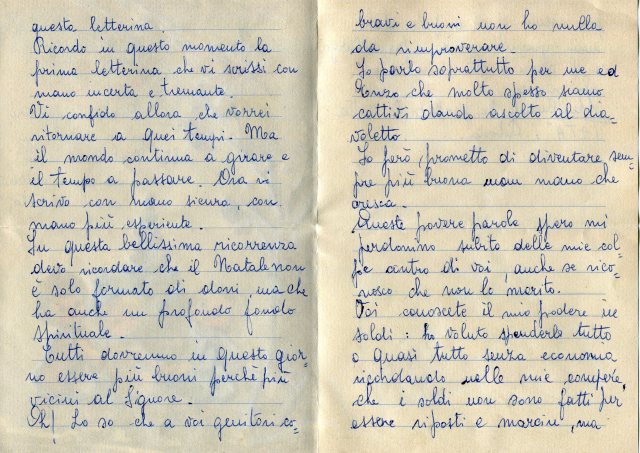 questa letterina.
Ricordo in questo momento la
prima letterina che vi scrissi con
mano incerta e tremante.
Vi confido allora che vorrei
ritornare a quei tempi. Ma
il mondo continua a girare e
il tempo a passare. Ora vi
scrivo con mano sicura, con
mano più esperiente.
In questa bellissima ricorrenza
devo ricordare che il Natale non
è solo formato di doni, ma che
ha anche un profondo fondo
spirituale.
Tutti dovremmo in questo gior-
no essere più buoni perchè più
vicini al Signore.
Ah! Lo so che a voi genitori co-
bravi e buoni non ho nulla
da rimproverare.
Io parlo soprattutto per me ed
Enzo che molto spesso siamo
cattivi dando ascolto al dia-
voletto.
Io però prometto di diventare sem-
pre più buona man mano che
cresca.
Queste povere parole spero mi
perdonino subito delle mie col-
pe contro di voi anche se rico-
nosco che non lo merito.
Voi conoscete il mio podere in
soldi: ho voluto spenderlo tutto
o quasi tutto senza economia
ricordando nelle mie compere,
che i soldi non sono fatti per
essere riposti e marcire, ma